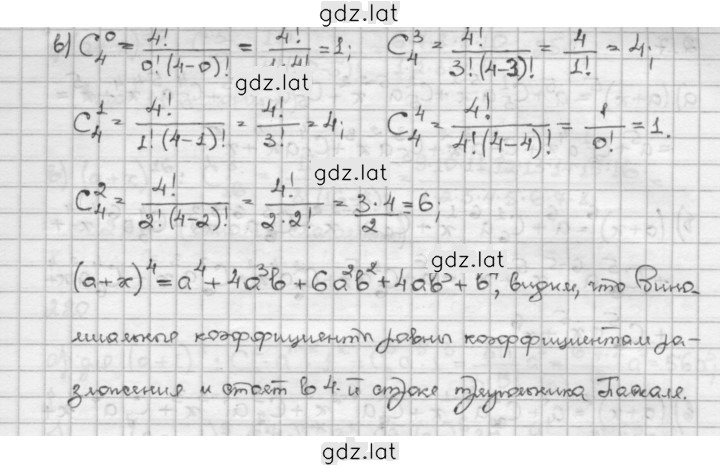 gdz.lat
в) C₄⁰ = 4!/0!(4-0)! = 4!/1·4! = 1; C₄³ = 4!/3!(4-3)! = 4/1! = 4;
gdz.lat
C₄¹ = 4!/1!(4-1)! = 4!/3! = 4; C₄⁴ = 4!/4!(4-4)! = 1/0! = 1.
gdz.lat
C₄² = 4!/2!(4-2)! = 4!/2·2! = 3·4/2 = 6;
gdz.lat
(a+x)⁴ = a⁴ + 4a³b + 6a²b² + 4ab³ + b⁴, видим, что бино-
миальные коэффициенты равны коэффициентам ра-
зложения и стоят в 4-й строке треугольника Паскаля.
gdz.lat